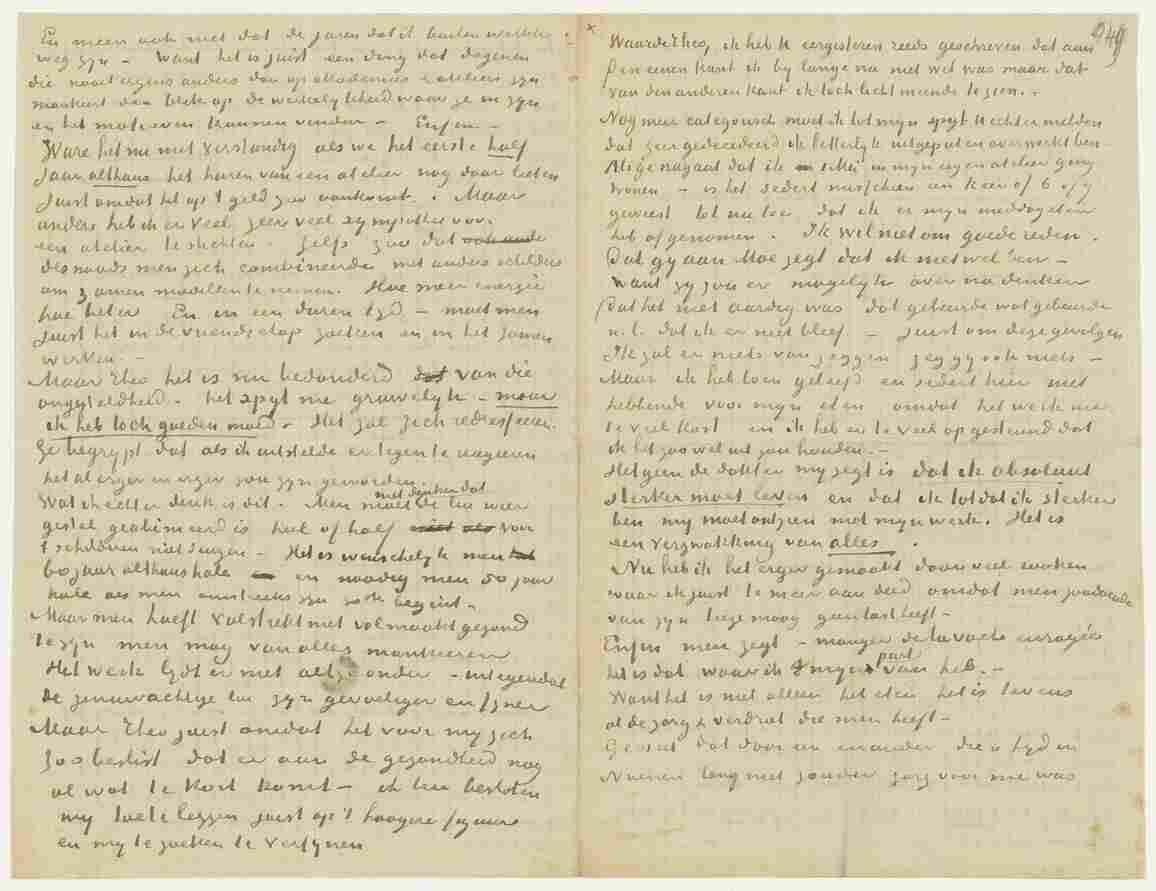 En meen ook niet dat de jaren dat ik buiten werkte
weg zyn – Want het is juist een ding dat degenen
die nooit ergens anders dan op akademies & ateliers zyn
mankeert den blik op de werkelykheid waar ze in zyn
en het motieven kunnen vinden – Enfin –
Ware het nu niet verstandig als we het eerste half
jaar althans het huren van een atelier nog daar lieten
juist omdat het op 't geld zoo aankomt. Maar
anders heb ik er veel zeer veel sympathie voor
een atelier te stichten. Zelfs zoo dat
desnoods men zich combineerde met andere schilders
om zamen modellen te nemen. Hoe meer energie
hoe beter En in een duren tyd – moet men
juist het in de vriendschap zoeken en in het zamen
werken. –
Maar Theo het is nu bedonderd dat van die
ongesteldheid – het spyt me gruwelyk – maar
ik heb toch goeden moed – Het zal zich redresseeren.
Ge begrypt dat als ik uitstelde er tegen te reageren
het al erger en erger zou zyn geworden.
Wat ik echter denk is dit. Men moet niet denken dat de lui wier
gestel geabimeerd is heel of half niet voor
't schilderen niet deugen – Het is wenschelyk men
60 jaar althans hale en noodig men 50 jaar
hale als men omstreeks zyn 30ste begint –
Maar men hoeft volstrekt niet volmaakt gezond
te zyn men mag van alles mankeeren
Het werk lydt er niet altyd onder – integendeel
de zenuwachtige lui zyn gevoeliger en fyner
Maar Theo juist omdat het voor my zich
zoo beslist dat er aan de gezondheid nog
al wat te kort komt – ik ben besloten
my toe te leggen juist op 't hoogere figuur
en my te zoeken te verfynen
x
249
Waarde Theo, ik heb U eergisteren reeds geschreven dat aan
den eenen kant ik by lange na niet wel was maar dat
van den anderen kant ik toch licht meende te zien. –
Nog meer categorisch moet ik tot myn spyt U echter melden
dat zeer gedecideerd ik letterlyk uitgeput en overwerkt ben
Als ge nagaat dat ik 1 Mei in myn eigen atelier ging
wonen – is het sedert misschien een keer of 6 of 7
geweest tot nu toe dat ik er myn middageten
heb of genomen. Ik wil niet om goede reden.
Dat gy aan Moe zegt dat ik niet wel ben –
want zy zou er mogelyk over na denken
dat het niet aardig was dat gebeurde wat gebeurde
n.l. dat ik er niet bleef – juist om deze gevolgen
Ik zal er niets van zeggen zeg gy ook niets –
Maar ik heb toen geleefd en sedert hier niet
hebbende voor myn eten omdat het werk me
te veel kost en ik heb er te veel op gesteund dat
ik het zoo wel uit zou houden. –
Hetgeen de dokter my zegt is dat ik absoluut
sterker moet leven en dat ik tot dat ik sterker
ben my moet ontzien met myn werk. Het is
een verzwakking van alles.
Nu heb ik het erger gemaakt door veel rooken
waar ik juist te meer aan deed omdat men zoodoende
van zyn leege maag geen last heeft –
Enfin men zegt – manger de la vache enragée
het is dat waar ik myn part van heb. –
Want het is niet alleen het eten het is tevens
al de zorg & verdriet die men heeft –
Ge weet dat door een en ander die tyd in
Nuenen lang niet zonder zorg voor me was